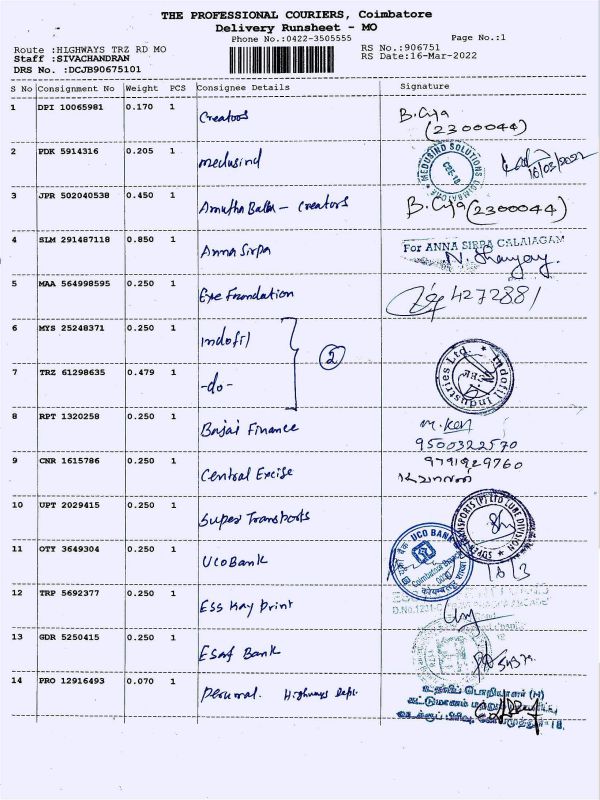 THE PROFESSIONAL COURIERS, Coimbatore
Delivery Runsheet - MO
Phone No.:0422-3505555 Page No.:1
Route :HIGHWAYS TRZ RD MO RS No.:906751
Staff :SIVACHANDRAN RS Date:16-Mar-2022
DRS No. :DCJB90675101
S No Consignment No Weight PCS Consignee Details Signature
1 DPI 10065981 0.170 1 Creators B.
(2300044)
2 PDK 5914316 0.205 1 medusind MEDUSIND SOLUTIONS COIMBATORE 16/03/2022
3 JPR 502040538 0.450 1 Amutha Balba - Creators B. (2300044)
4 SLM 291487118 0.850 1 Anna Sirpa For ANNA SIRPA CALAIAGAM
5 MAA 564998595 0.250 1 Eye Foundation 4272881
6 MYS 25248371 0.250 1 Indofil 2
7 TRZ 61298635 0.479 1 -do- Indofil Industries Ltd.
8 RPT 1320258 0.250 1 Bajai Finance
9500322570
9 CNR 1615786 0.250 1 Central Excise 9791929760
10 UPT 2029415 0.250 1 Super Transports SUPER TRANSPORTS (P) LTD DIVISION
11 OTY 3649304 0.250 1 UCO Bank UCO BANK
12 TRP 5692377 0.250 1 Ess Kay Print
13 GDR 5250415 0.250 1 Esaf Bank
14 PRO 12916493 0.070 1 Personal. Highways Dept.
உதவிப் பொறியாளர் (H)